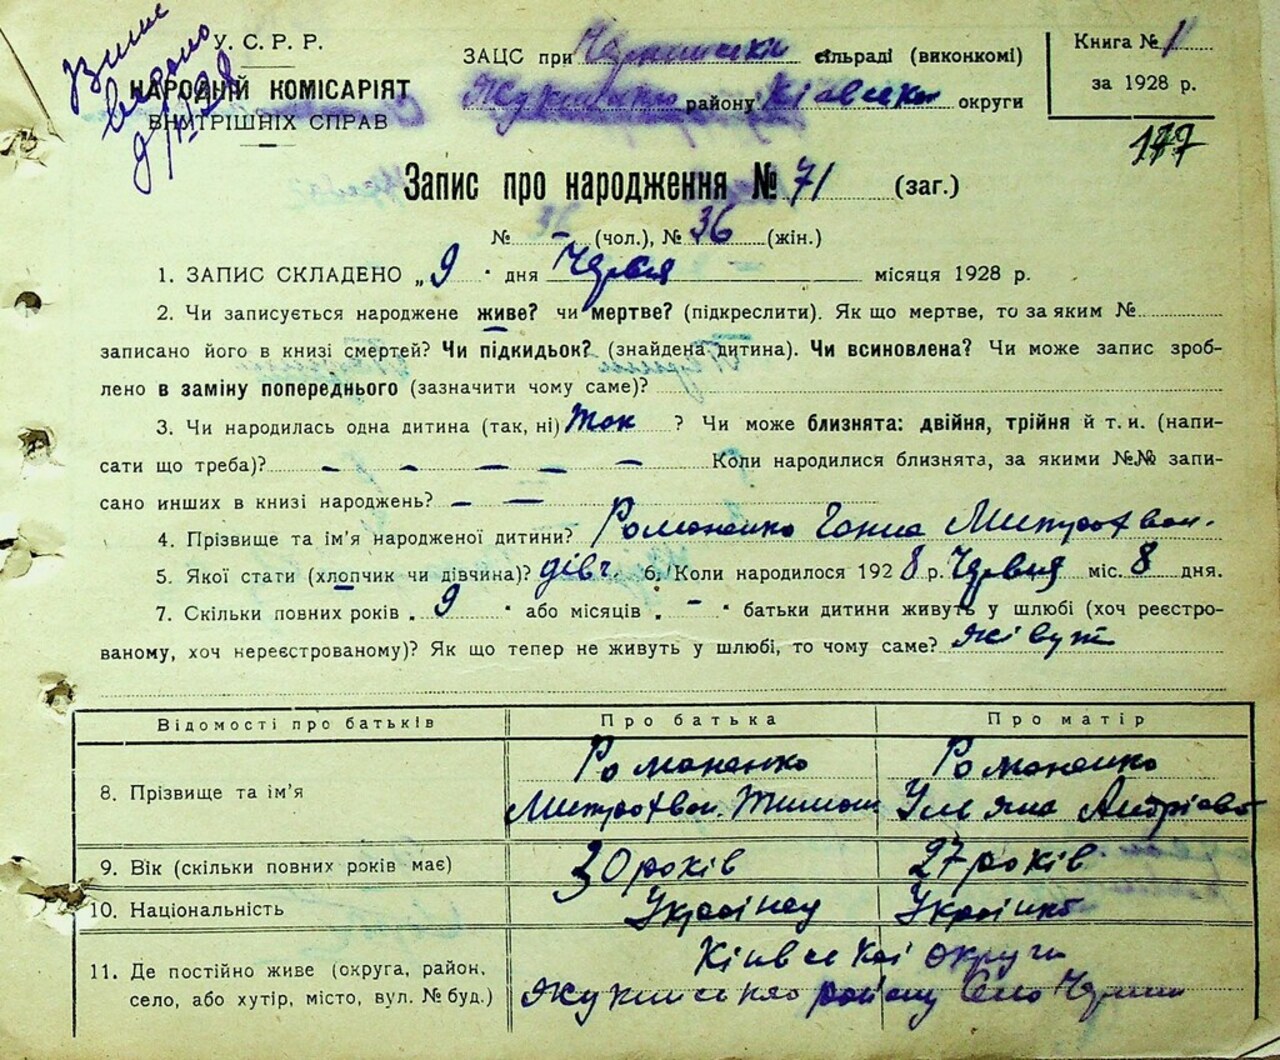 Випис
видано
У. С. Р. Р.
НАРОДНІЙ КОМІСАРІЯТ
ВНУТРІШНІХ СПРАВ
ЗАЦС при сільраді (виконкомі)
району Київської округи
Книга № 1
за 1928 р.
177
Запис про народження № 71 (заг.)
№ – (чол.), № 36 (жін.)
1. ЗАПИС СКЛАДЕНО „ 9 " дня Червня місяця 1928 р.
2. Чи записується народжене живе? чи мертве? (підкреслити). Як що мертве, то за яким №
записано його в книзі смертей? Чи підкидьок? (знайдена дитина). Чи всиновлена? Чи може запис зроб-
лено в заміну попереднього (зазначити чому саме)?
3. Чи народилась одна дитина (так, ні) Так ? Чи може близнята: двійня, трійня й т. и. (напи-
сати що треба)? – – – – – Коли народилися близнята, за якими №№ запи-
сано инших в книзі народжень? – –
4. Прізвище та ім'я народженої дитини? Романенко Ганна Митрофван.
5. Якої стати (хлопчик чи дівчина)? дівч. 6. Коли народилося 1928 р. Червня міс. 8 дня.
7. Скільки повних років „ 9 " або місяців „ – " батьки дитини живуть у шлюбі (хоч реєстро-
ваному, хоч нереєстрованому)? Як що тепер не живуть у шлюбі, то чому саме? живут
Відомості про батьків Про батька Про матір
8. Прізвище та ім'я Романенко Романенко
Митрофван. Тимош Уляна Андрієвс
9. Вік (скільки повних років має) 30 років 27 років
10. Національність Українец Українка
11. Де постійно живе (округа, район, Київської округи
село, або хутір, місто, вул. № буд.) району Село